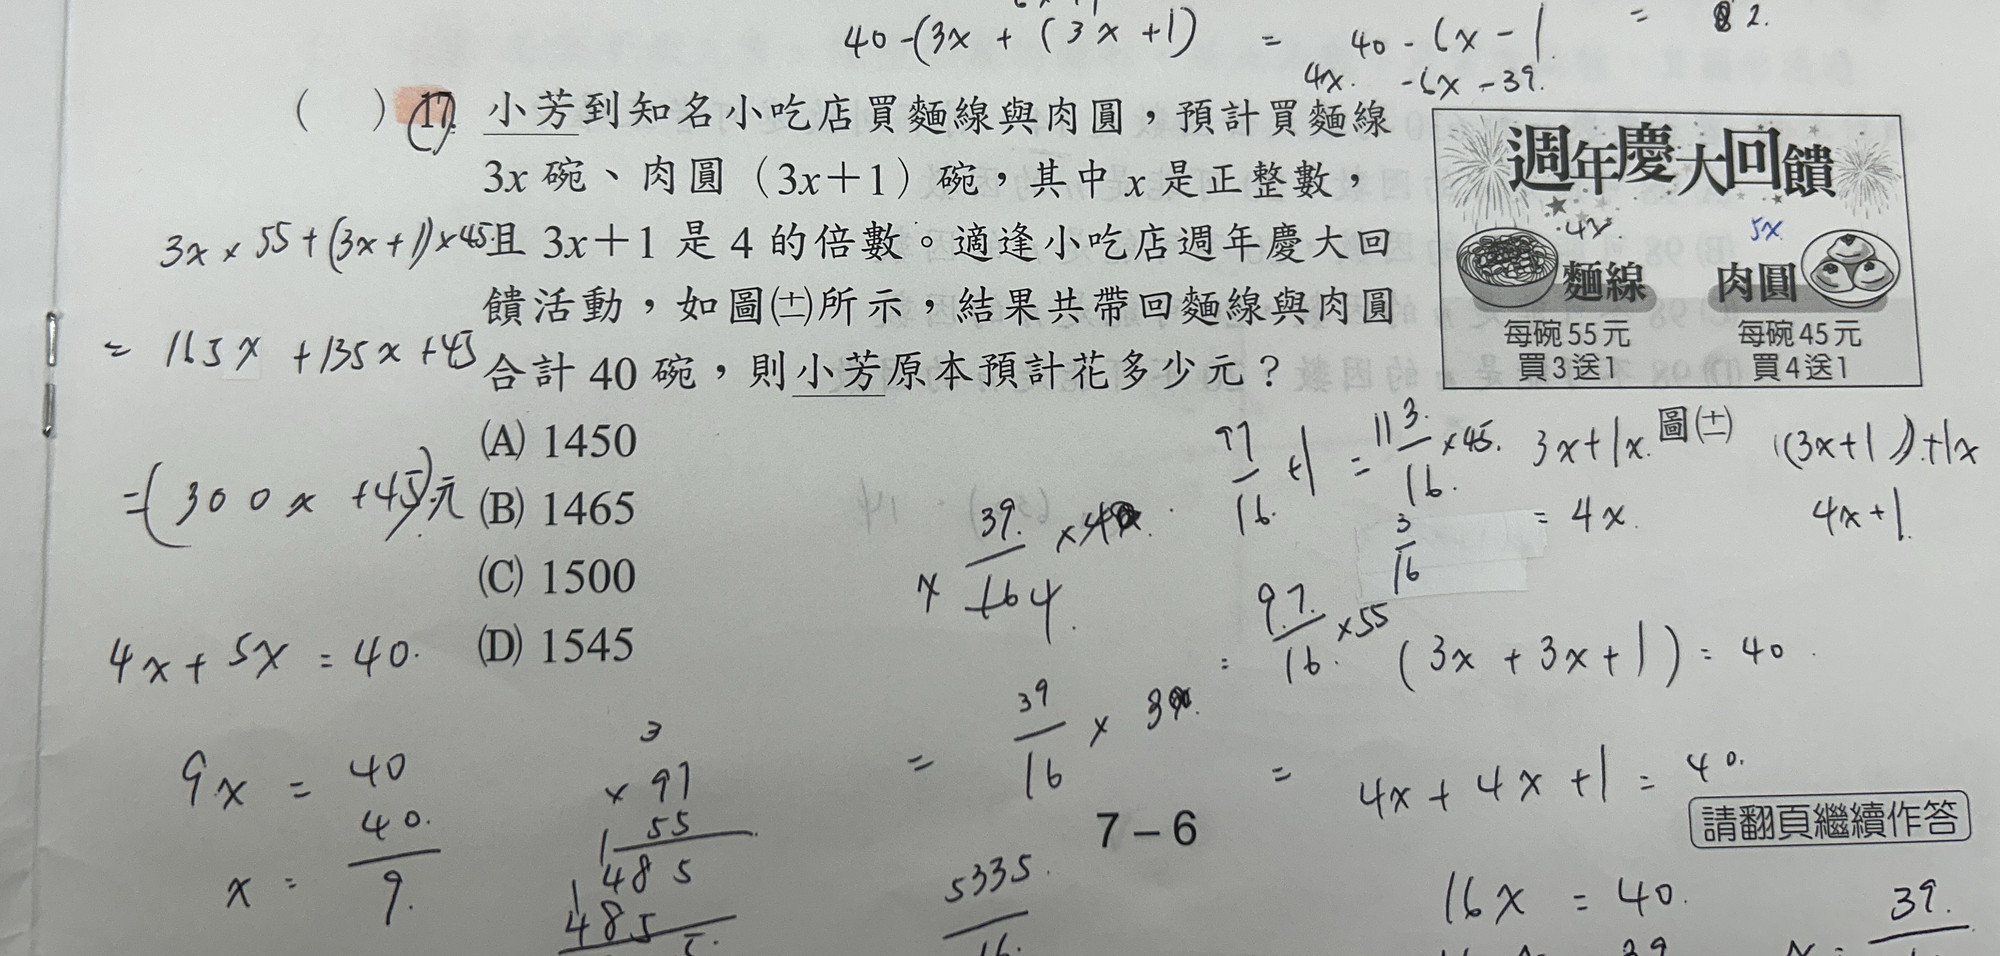 40-(3x+(3x+1) = 40-6x-1 = 2.
4x. -6x-39.
( ) 17. 小芳到知名小吃店買麵線與肉圓，預計買麵線
3x 碗、肉圓（3x＋1）碗，其中 x 是正整數，
且 3x＋1 是 4 的倍數。適逢小吃店週年慶大回
饋活動，如圖㈩所示，結果共帶回麵線與肉圓
合計 40 碗，則小芳原本預計花多少元？
(A) 1450
(B) 1465
(C) 1500
(D) 1545
週年慶大回饋
4x 5x
麵線 肉圓
每碗55元 每碗45元
買3送1 買4送1
3x×55+(3x+1)×45
= 165x+135x+45
=(300x+45)元
4x+5x=40.
9x = 40
x = 40/9.
3
× 97
55
485
485
97/16+1 = 113/16 ×45.
3/16
3x+1x.
= 4x.
(3x+1)+1x
4x+1
39/16
97/16 ×55
(3x+3x+1)=40.
39/16 × 3
= 4x+4x+1=40.
5335/16.
16x = 40.
39.
7－6
請翻頁繼續作答